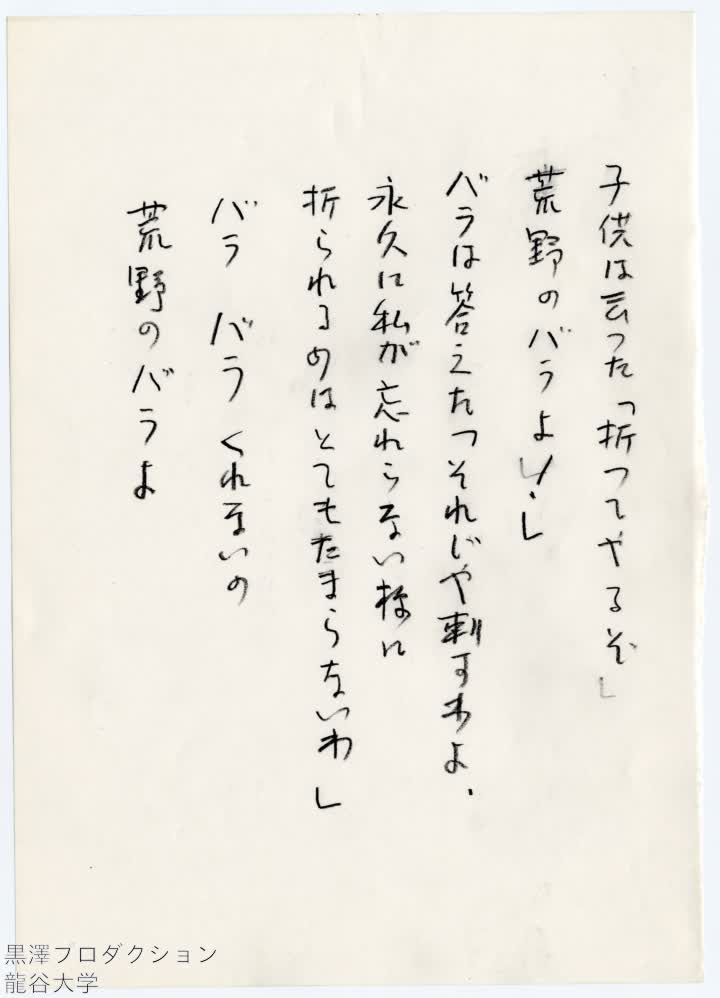 子供は云つた「折つてやるぞ」
荒野のバラよ!」
バラは答えた「それじや刺すわよ、
永久に私が忘れらない様に
折られるのはとてもたまらないわ」
バラ バラ くれないの
荒野のバラよ
黒澤プロダクション
龍谷大学